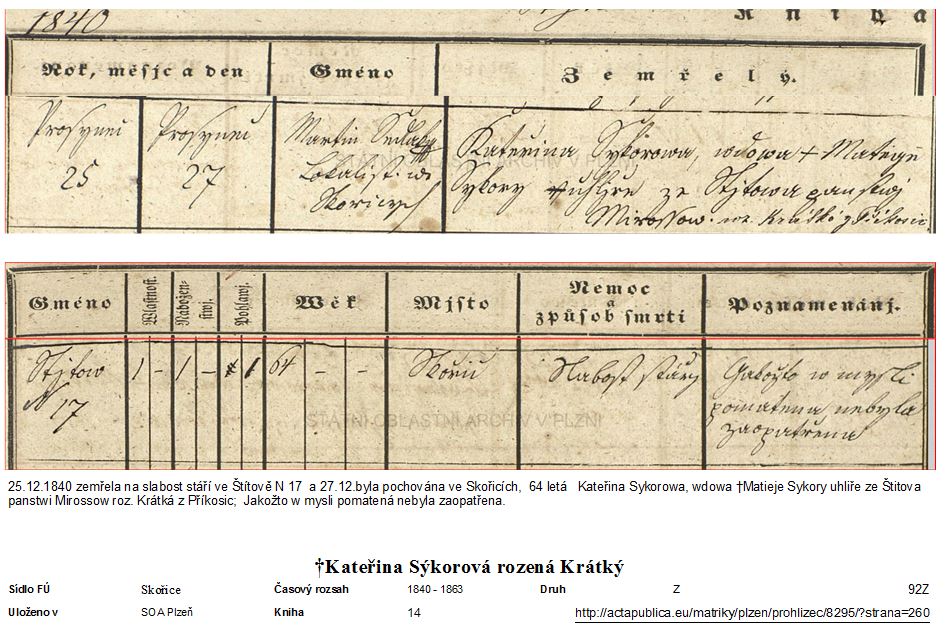 1840
Kniha
Rok, měsjc a den Gméno Zemřelý.
Prosynec Prosynec Martin Sedlak Kateřina Sykorowa, wdowa + Matege
25 27 Lokalist we Sykory uhljře ze Stjtowa panstwj
Skoricych Mirossow. roz. Krátká z Přikosic
Gméno Wlastnost. Nábožen- stwj. Pohlawj. Wěk Mjsto Nemoc
a
způsob smrti Poznamenánj.
Stjtow 1 - 1 - 1 64 - - Skořic Slabost stářj Gakožto w mysli
N 17 pomatena nebyla
zaopatřena
STÁTNÍ OBLASTNÍ ARCHIV V PLZNI
25.12.1840 zemřela na slabost stáří ve Štítově N 17 a 27.12.byla pochována ve Skořicích, 64 letá Kateřina Sykorowa, wdowa †Matieje Sykory uhlíře ze Štitova
panstwi Mirossow roz. Krátká z Příkosic; Jakožto v mysli pomatená nebyla zaopatřena.
†Kateřina Sýkorová rozená Krátký
Sídlo FÚ Skořice Časový rozsah 1840 - 1863 Druh Z 92Z
Uloženo v SOA Plzeň Kniha 14 http://actapublica.eu/matriky/plzen/prohlizec/8295/?strana=260